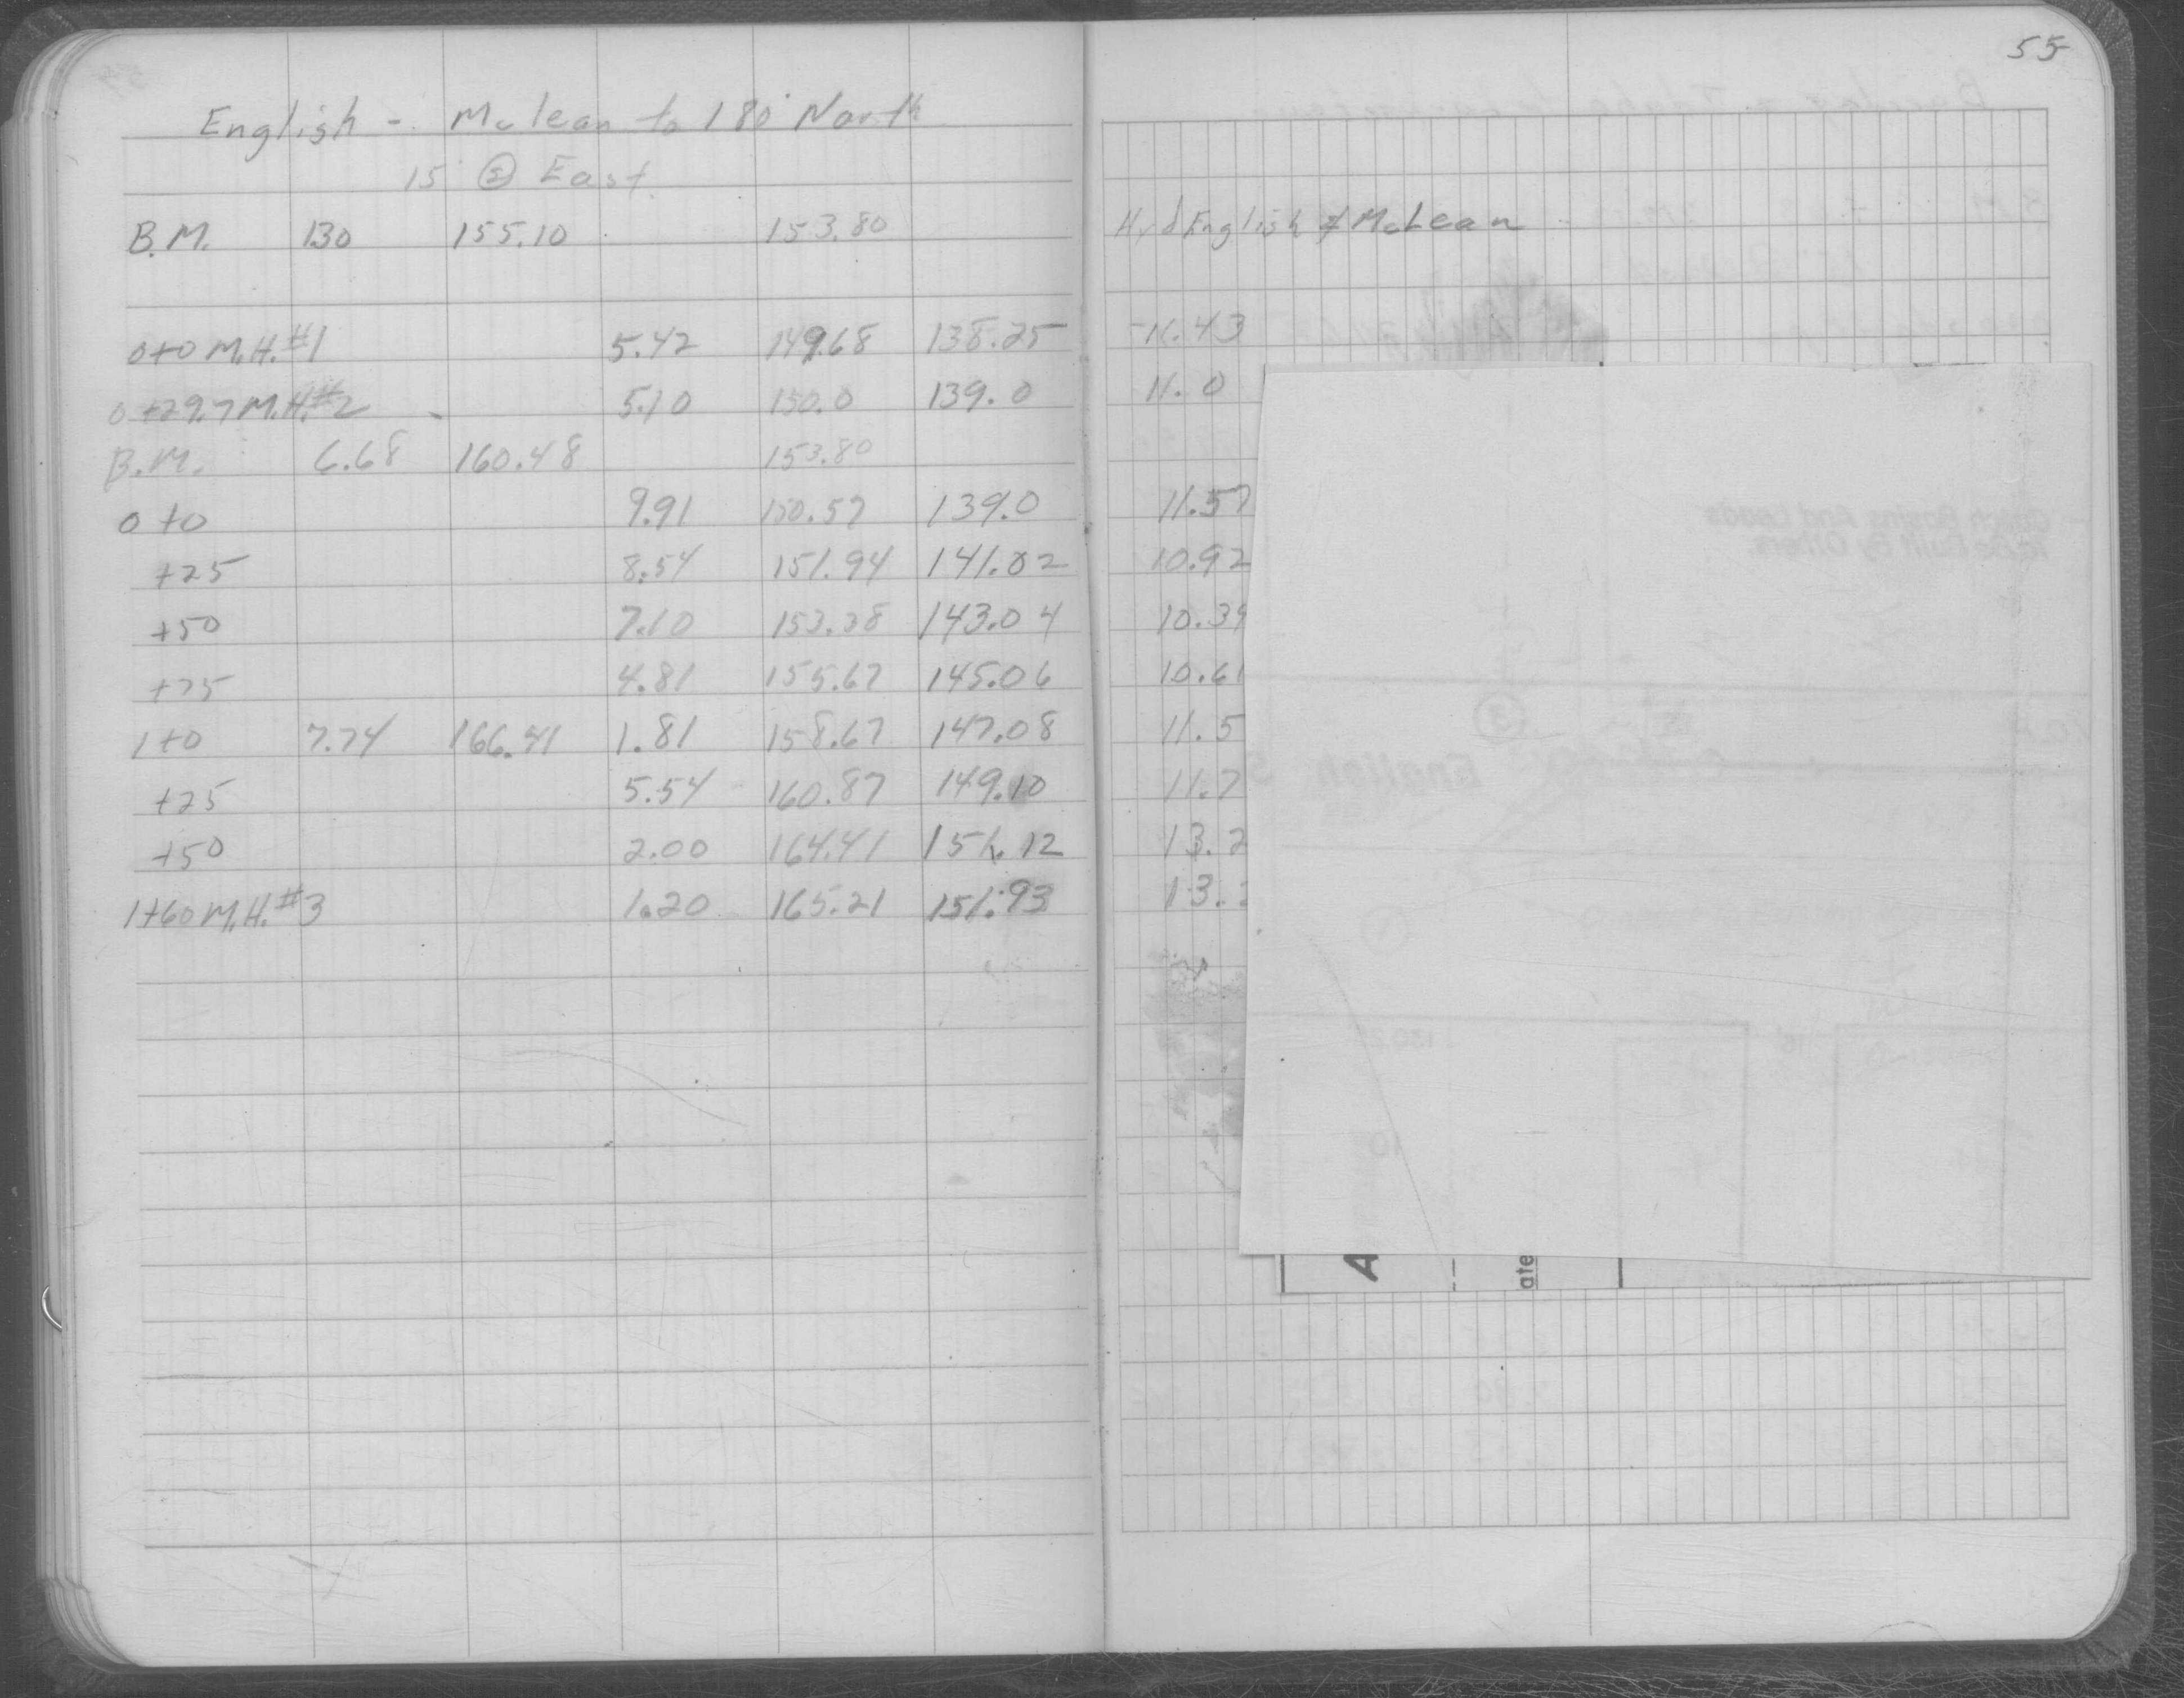 55
English - McLean to 180' North
15' East
B.M. 130 155.10 153.80 Hyd English & McLean
0+0 M.H. #1 5.42 149.68 138.25 11.43
0+29.7 M.H. #2 5.10 150.0 139.0 11.0
B.M. 6.68 160.48 153.80
0+0 9.91 150.57 139.0 11.57
+25 8.54 151.94 141.02 10.92
+50 7.10 153.38 143.04 10.34
+75 4.81 155.67 145.06 10.61
1+0 7.74 166.41 1.81 158.67 147.08 11.5
+25 5.54 160.87 149.10 11.7
+50 2.00 164.41 151.12 13.2
1+60 M.H. #3 1.20 165.21 151.93 13.
Catch Basins And Leads
To Be Built By Others.
English S
A
ate